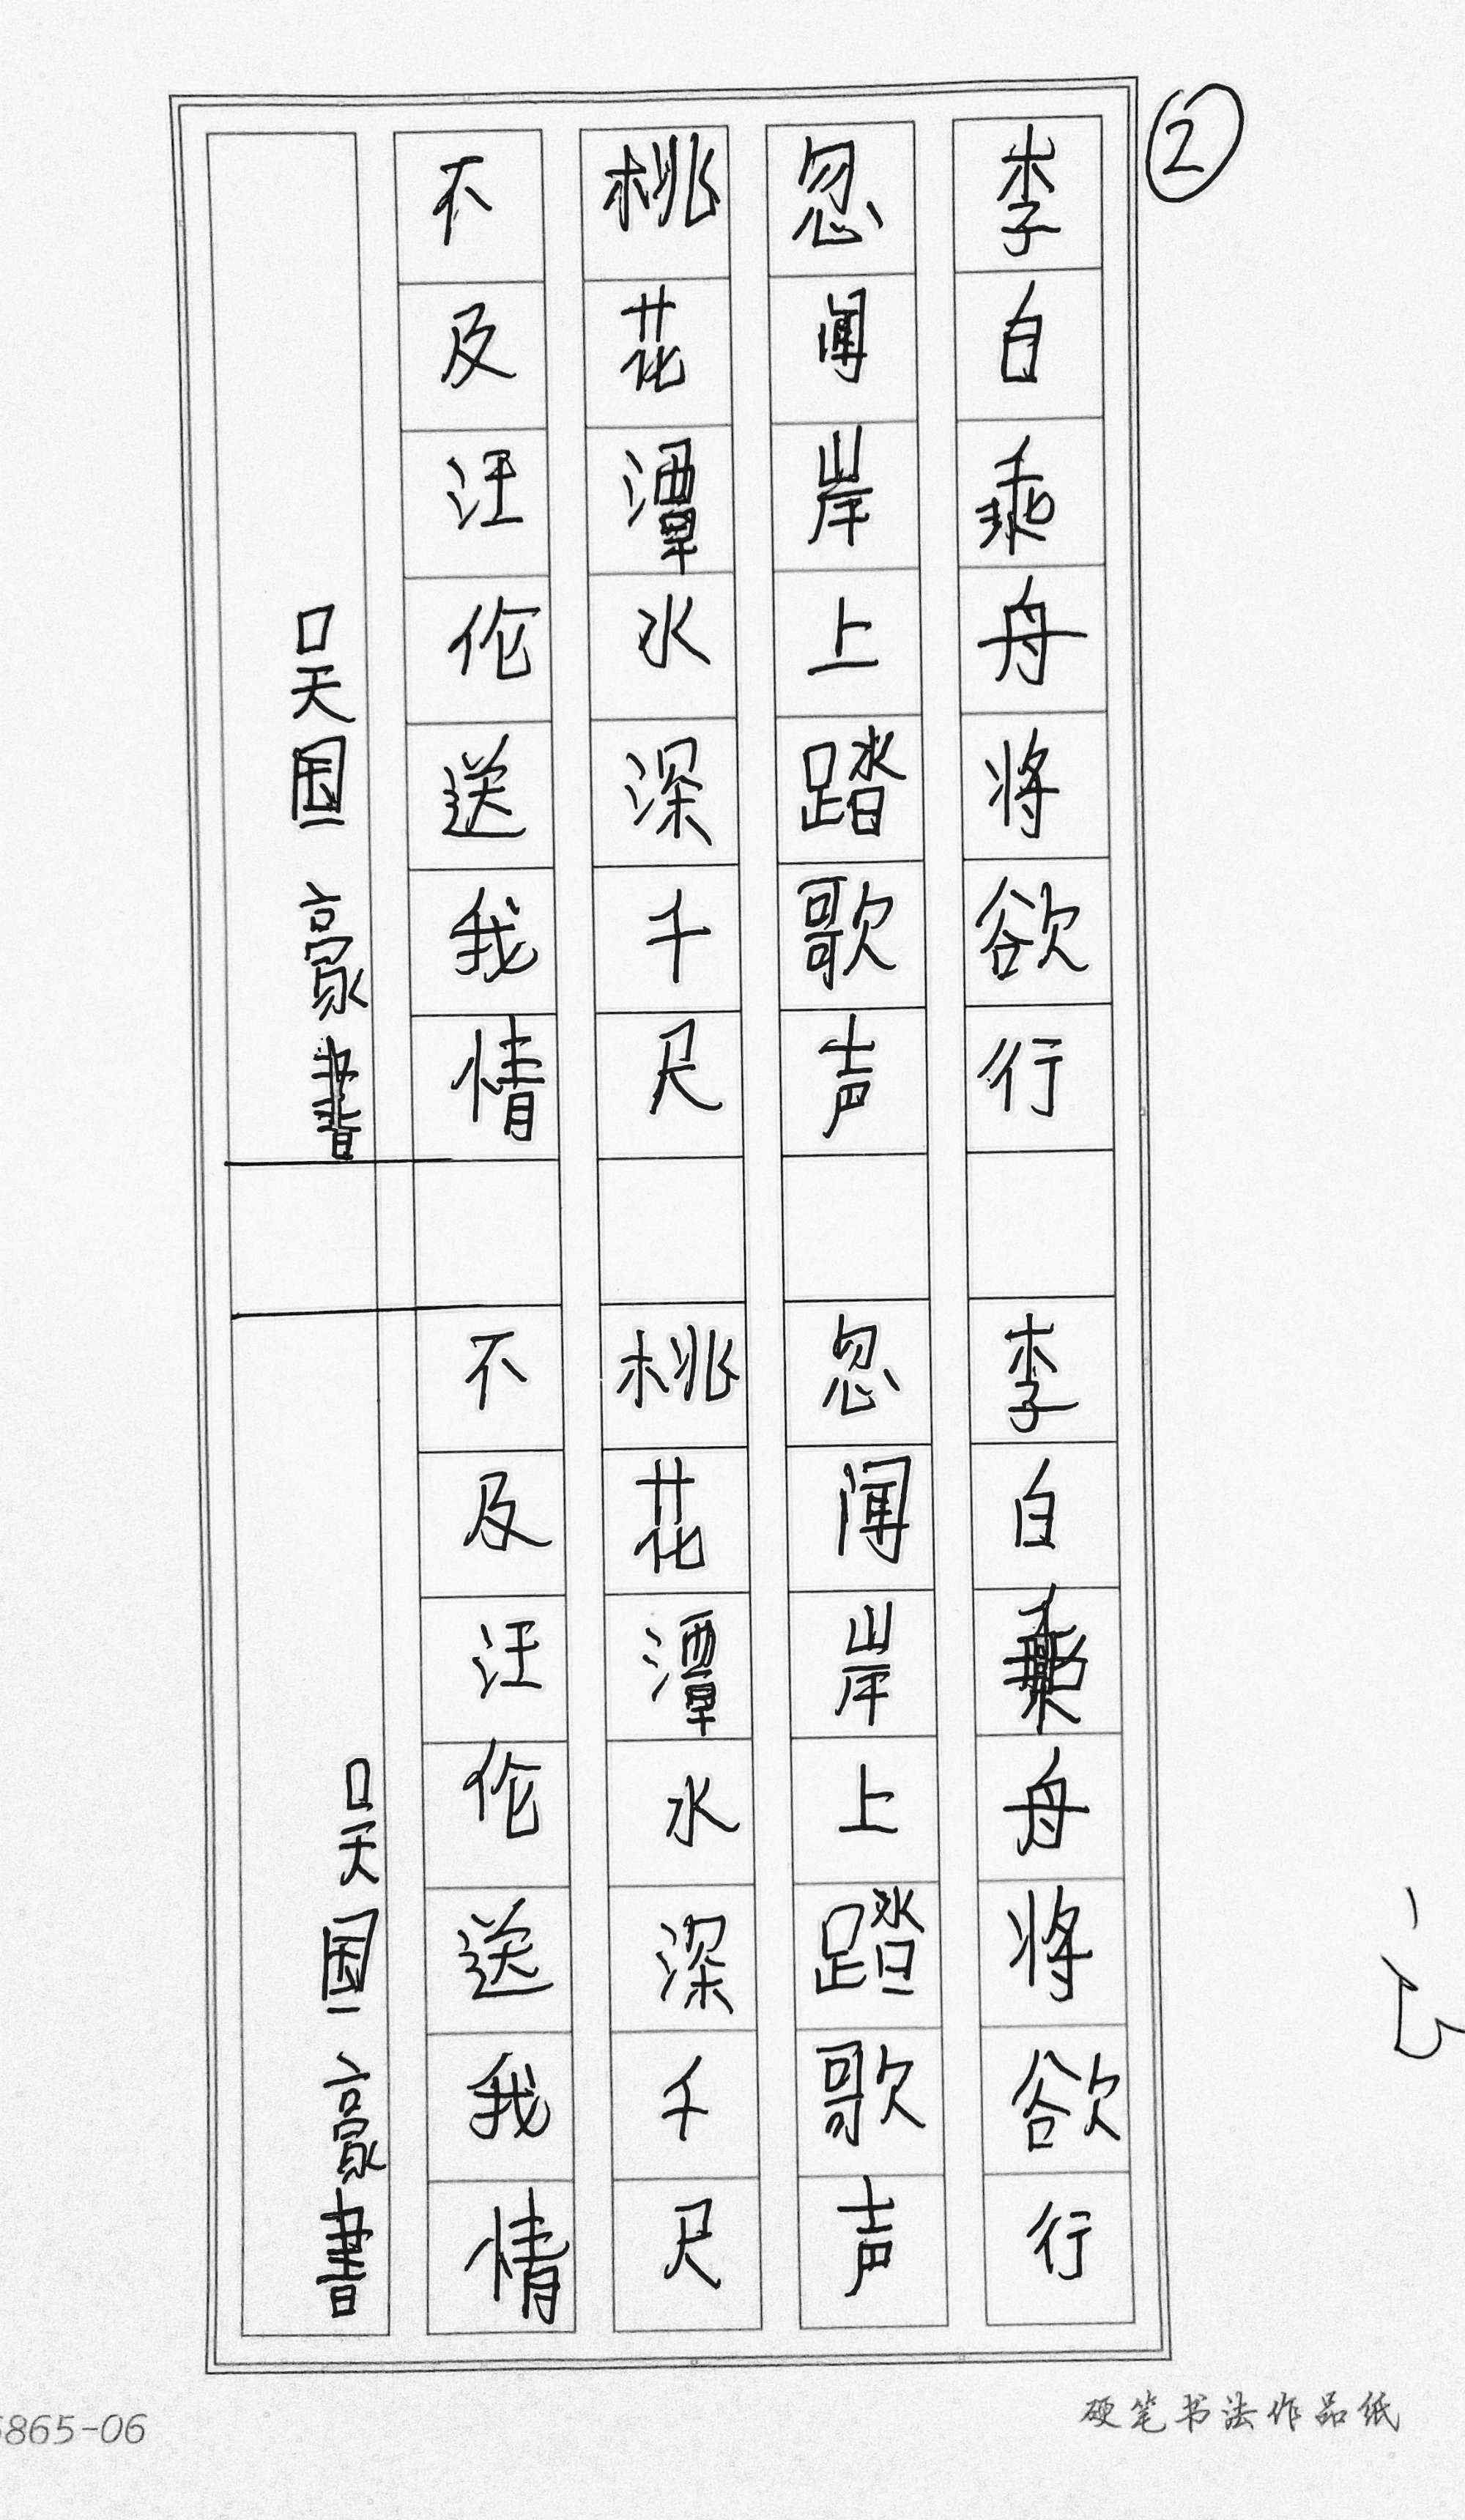 ②
李白乘舟将欲行
忽闻岸上踏歌声
桃花潭水深千尺
不及汪伦送我情
吴国豪書
李白乘舟将欲行
忽闻岸上踏歌声
桃花潭水深千尺
不及汪伦送我情
吴国豪書
5865-06
硬笔书法作品纸